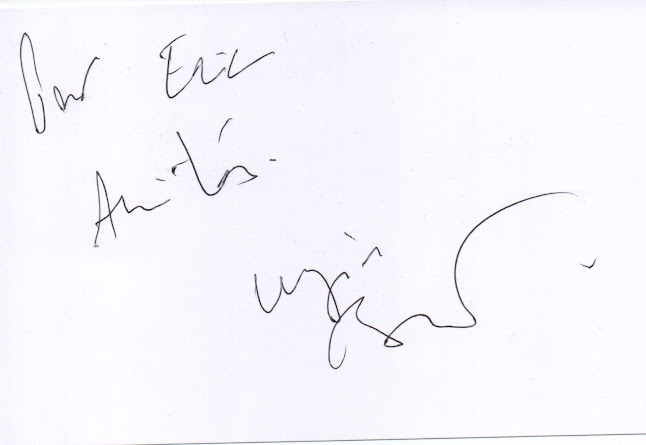 Pour Eric
Amitiés.